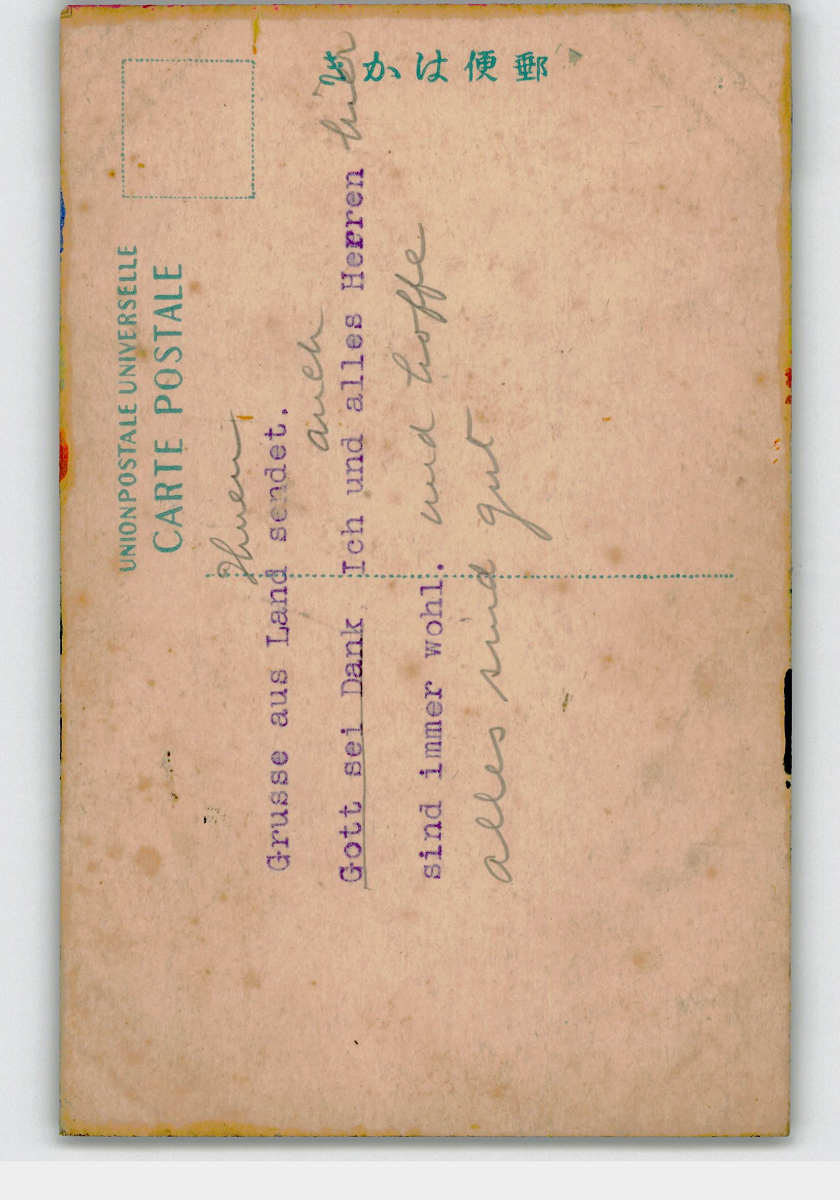 郵便はかき
UNION POSTALE UNIVERSELLE
CARTE POSTALE
Ihnen
Grusse aus Land sendet.
auch
Gott sei Dank Ich und alles Herren hier
sind immer wohl. und hoffe
alles sind gut